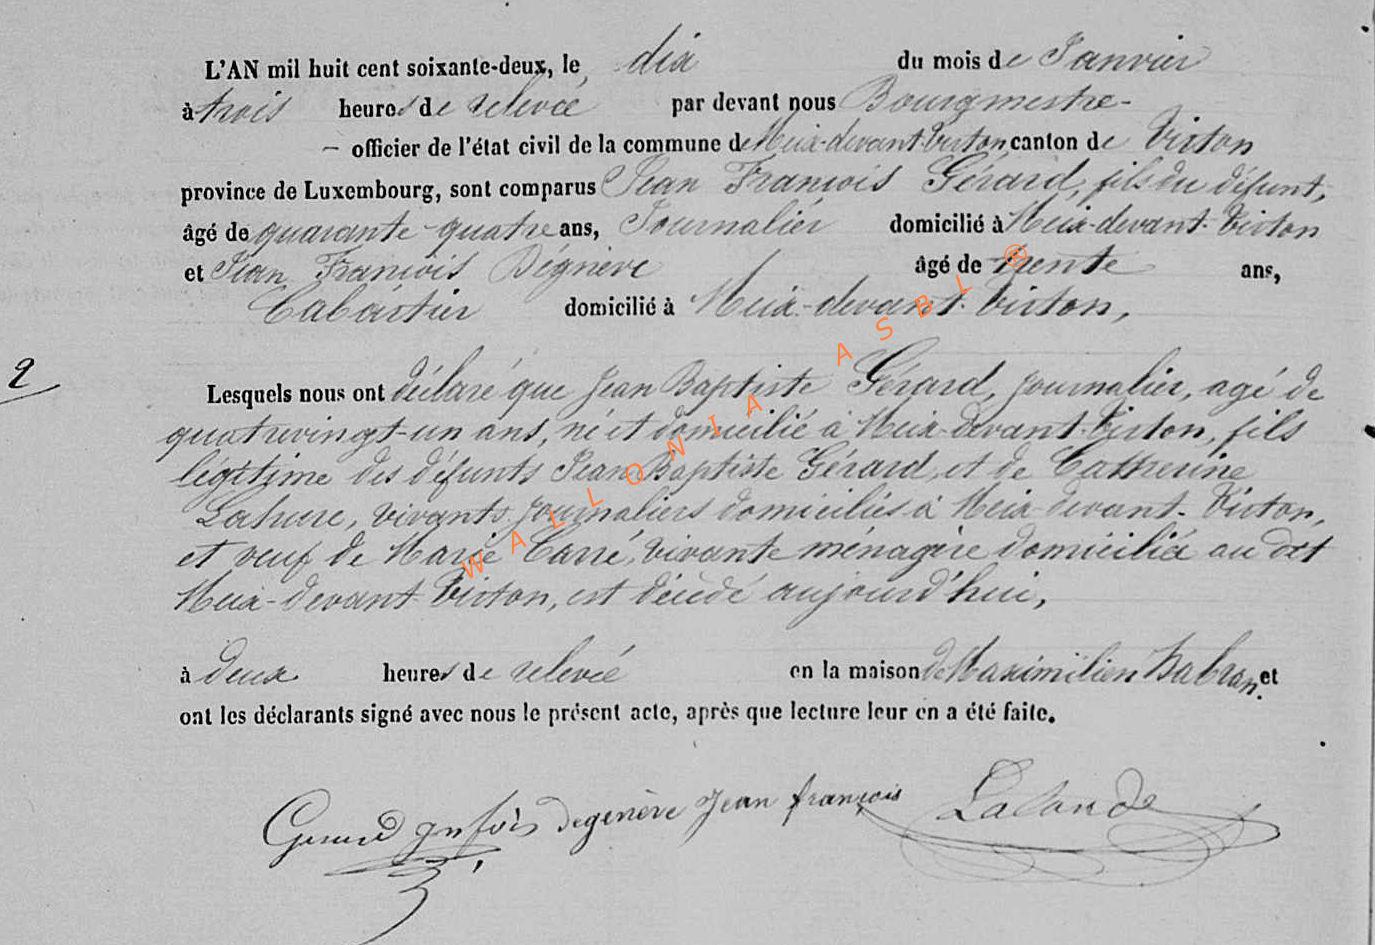 L'AN mil huit cent soixante-deux, le dix du mois de Janvier
à trois heures de relevée par devant nous Bourgmestre-
– officier de l'état civil de la commune de Meix-devant-Virton canton de Virton
province de Luxembourg, sont comparus Jean François Gérard, fils du défunt,
âgé de quarante-quatre ans, Journalier domicilié à Meix-devant-Virton
et Jean François Dégnère âgé de trente ans,
Cabartier domicilié à Meix-devant-Virton,
2
Lesquels nous ont déclaré que Jean Baptiste Gérard, journalier, agé de
quatrevingt-un ans, né et domicilié à Meix-devant-Virton, fils
légitime des défunts Jean Baptiste Gérard, et de Catherine
Lahure, vivants journaliers domiciliés à Meix-devant-Virton,
et veuf de Marie Carré, vivante ménagère domiciliée au dit
Meix-devant-Virton, est décédé aujourd'hui,
à deux heures de relevée en la maison de Maximilien Habran, et
ont les déclarants signé avec nous le présent acte, après que lecture leur en a été faite.
Gerard jn fois degenère Jean françois Lalande
WALLONIA ASBL ®